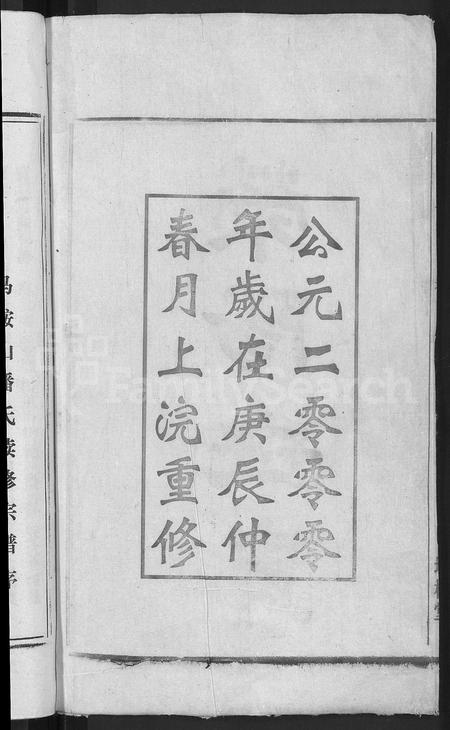 公元二零零零
年歲在庚辰仲
春月上浣重修
山潘氏續修宗譜序
FamilySearch